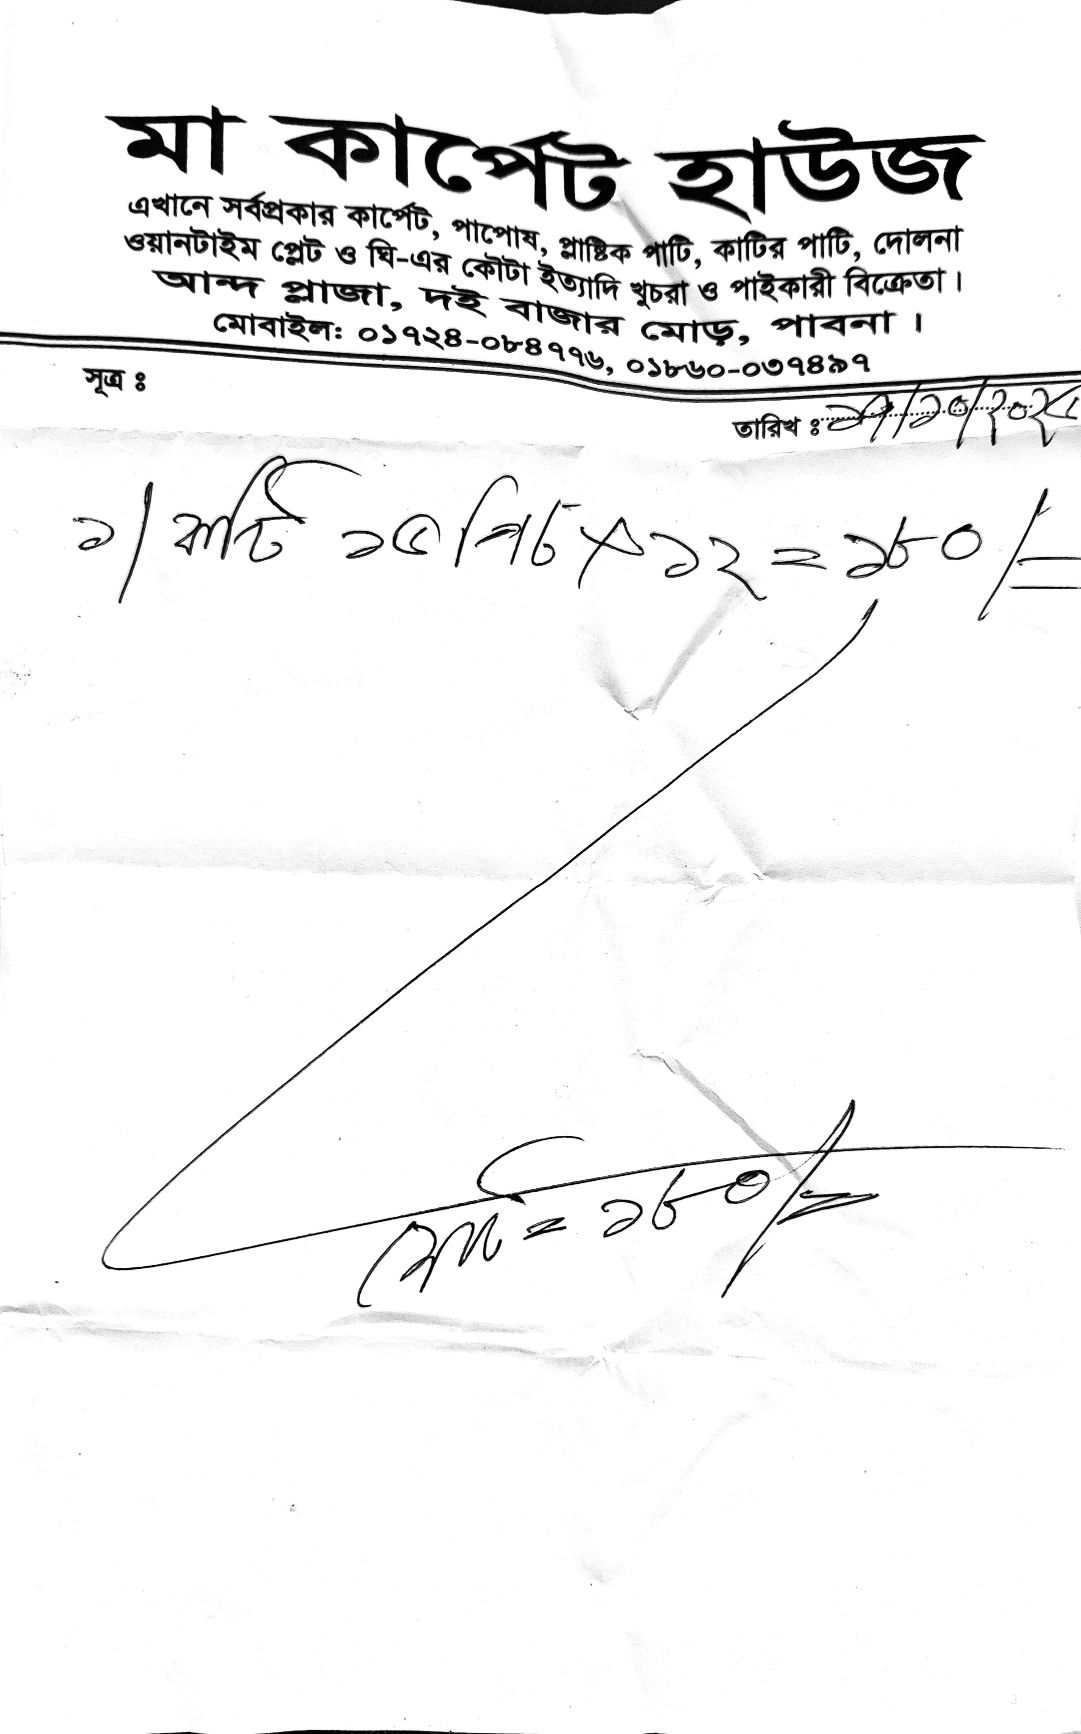 মা কার্পেট হাউজ
এখানে সর্বপ্রকার কার্পেট, পাপোষ, প্লাষ্টিক পাটি, কাটির পাটি, দোলনা
ওয়ানটাইম প্লেট ও ঘি-এর কৌটা ইত্যাদি খুচরা ও পাইকারী বিক্রেতা।
আনন্দ প্লাজা, দই বাজার মোড়, পাবনা।
মোবাইল: ০১৭২৪-০৮৪৭৭৬, ০১৮৬০-০৩৭৪৯৭
সূত্র ঃ
তারিখ ঃ
১/ কাটি ১৫ পিচ × ১২ = ১৮০/=
মোট = ১৮০/=